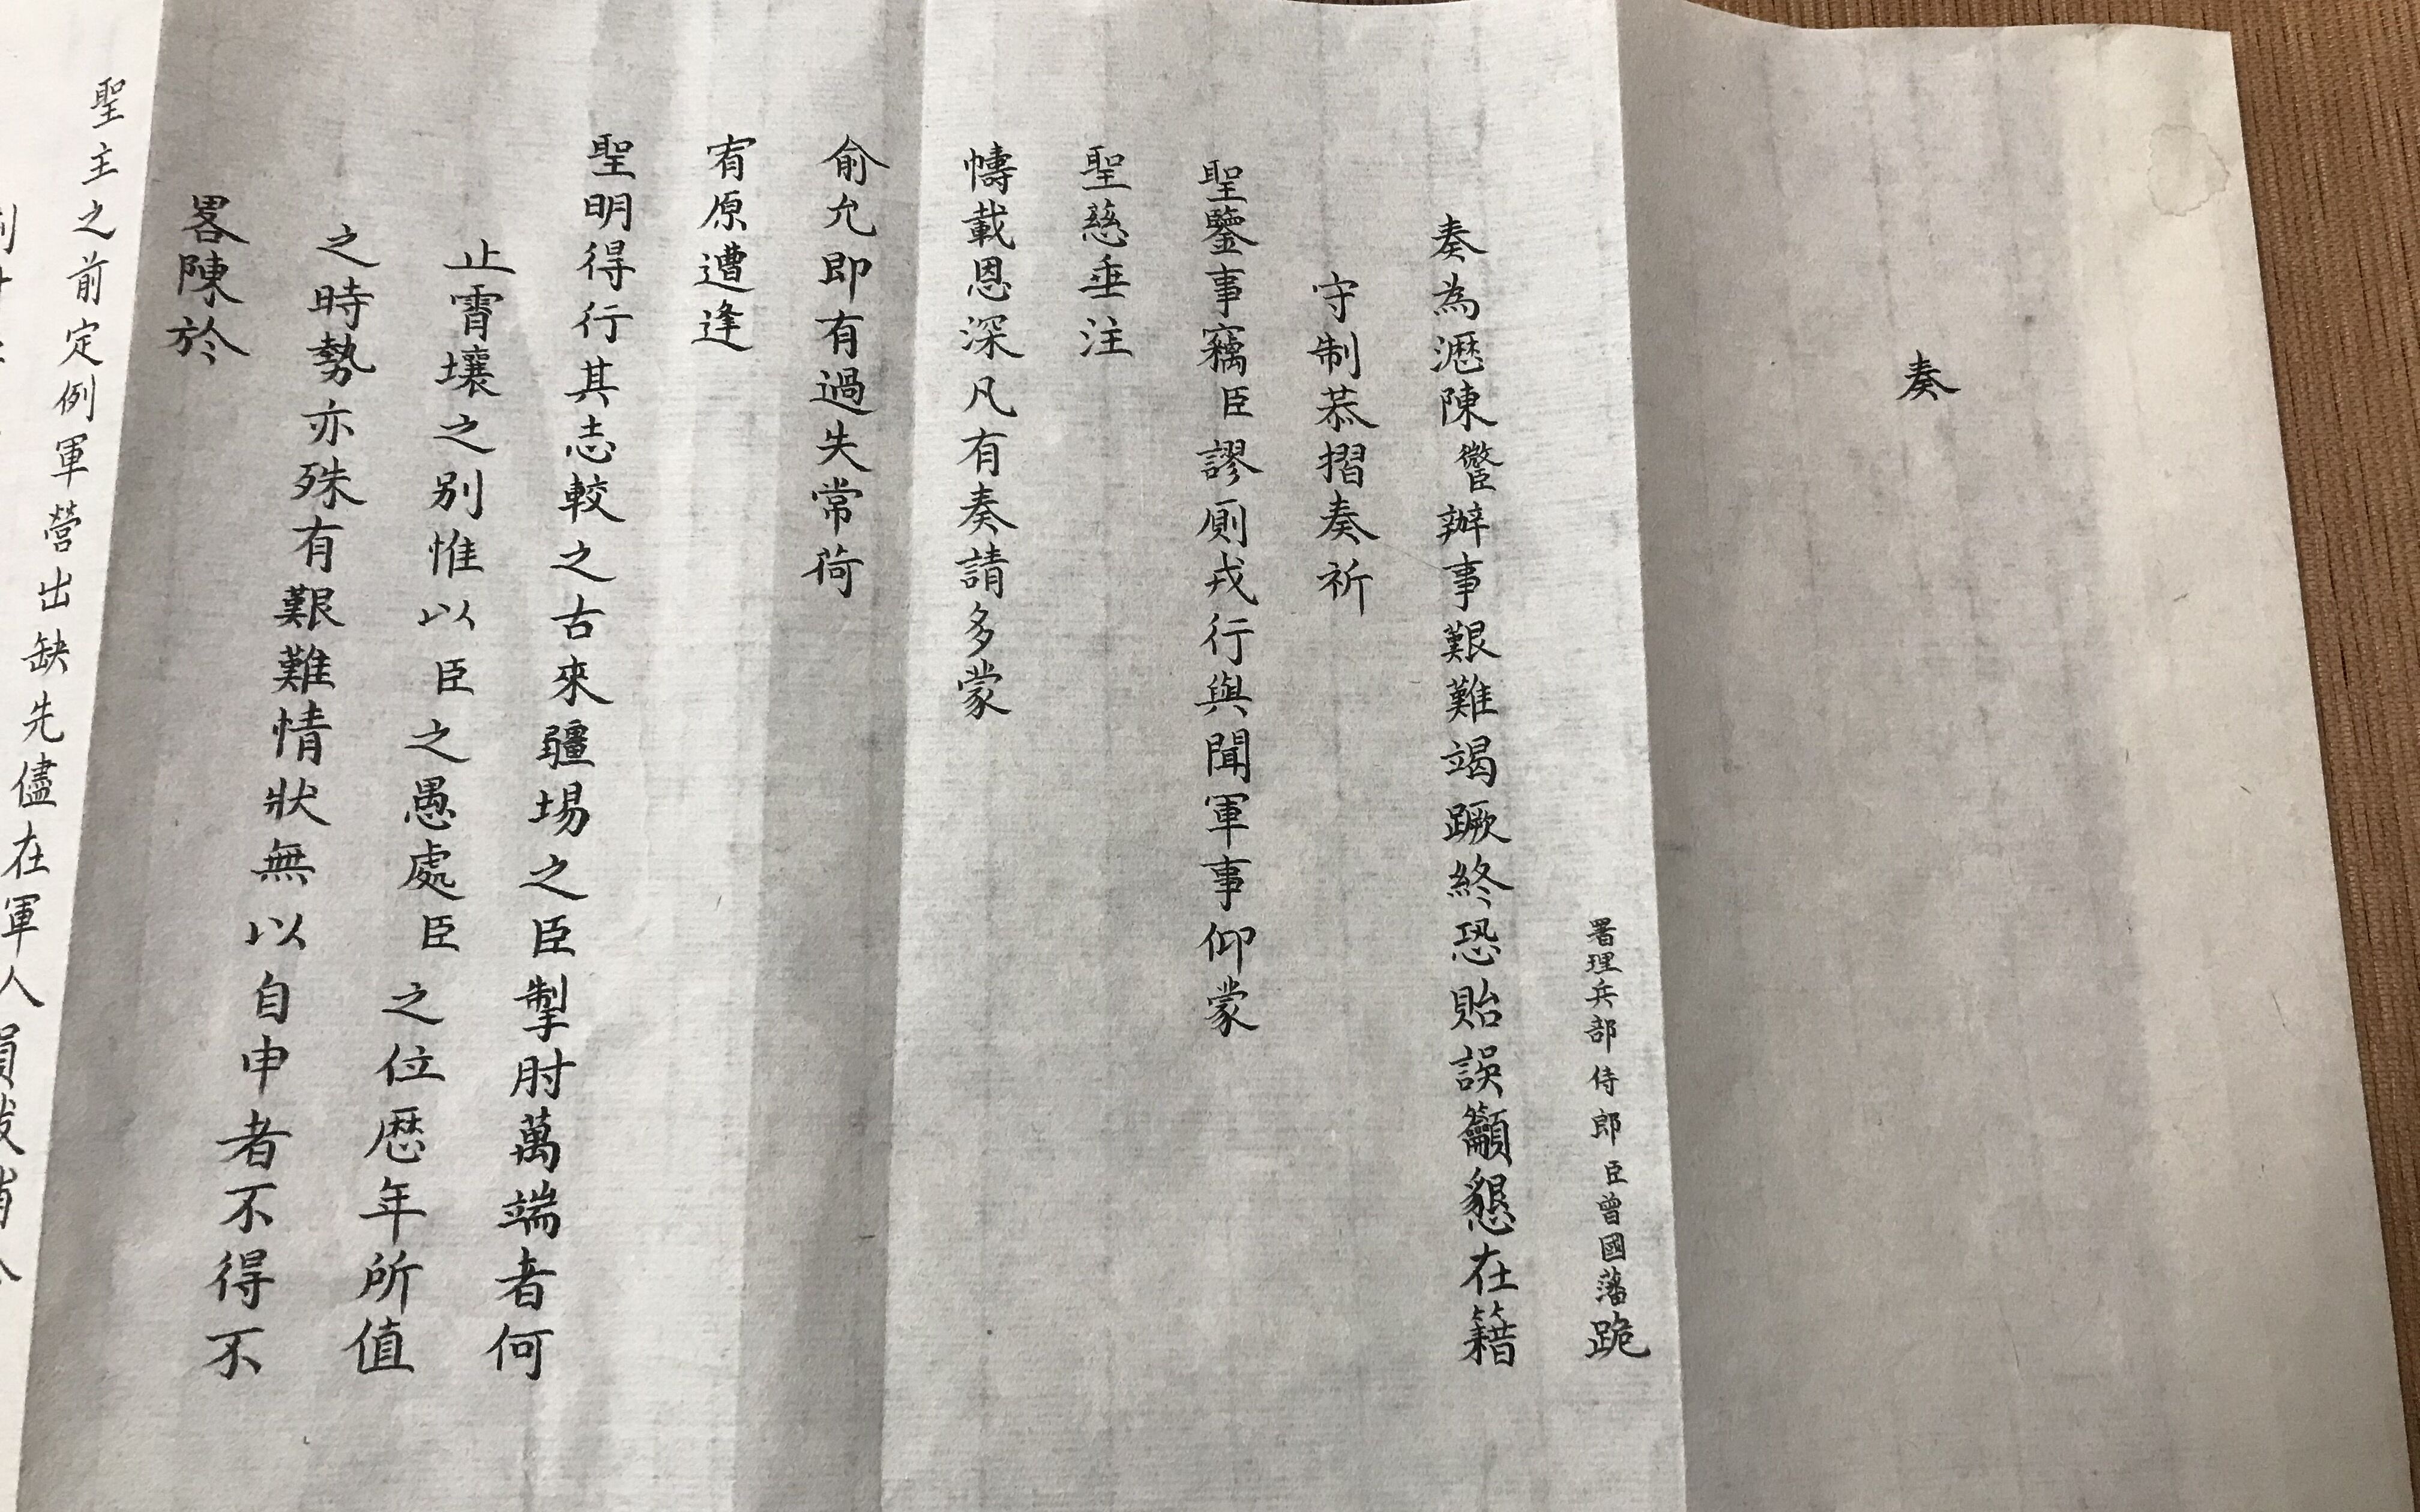 奏
署理兵部侍郎臣曾國藩跪
奏為瀝陳微臣辦事艱難竭蹶終恐貽誤籲懇在籍
守制恭摺奏祈
聖鑒事竊臣謬厠戎行與聞軍事仰蒙
聖慈垂注
幬載恩深凡有奏請多蒙
俞允即有過失常荷
宥原遭逢
聖明得行其志較之古來疆埸之臣掣肘萬端者何
止霄壤之別惟以臣之愚處臣之位歷年所值
之時勢亦殊有艱難情狀無以自申者不得不
畧陳於
聖主之前定例軍營出缺先儘在軍人員拔